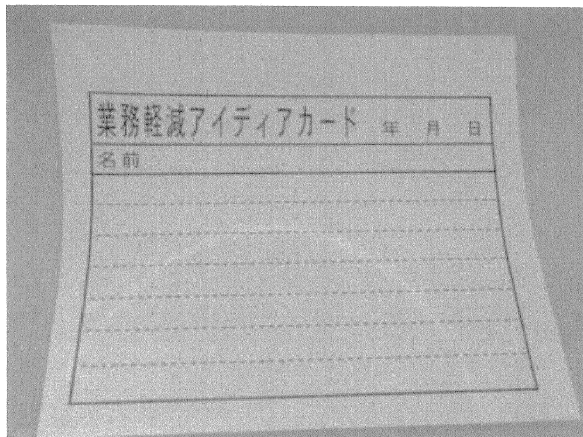 業務軽減アイディアカード 年 月 日
名前